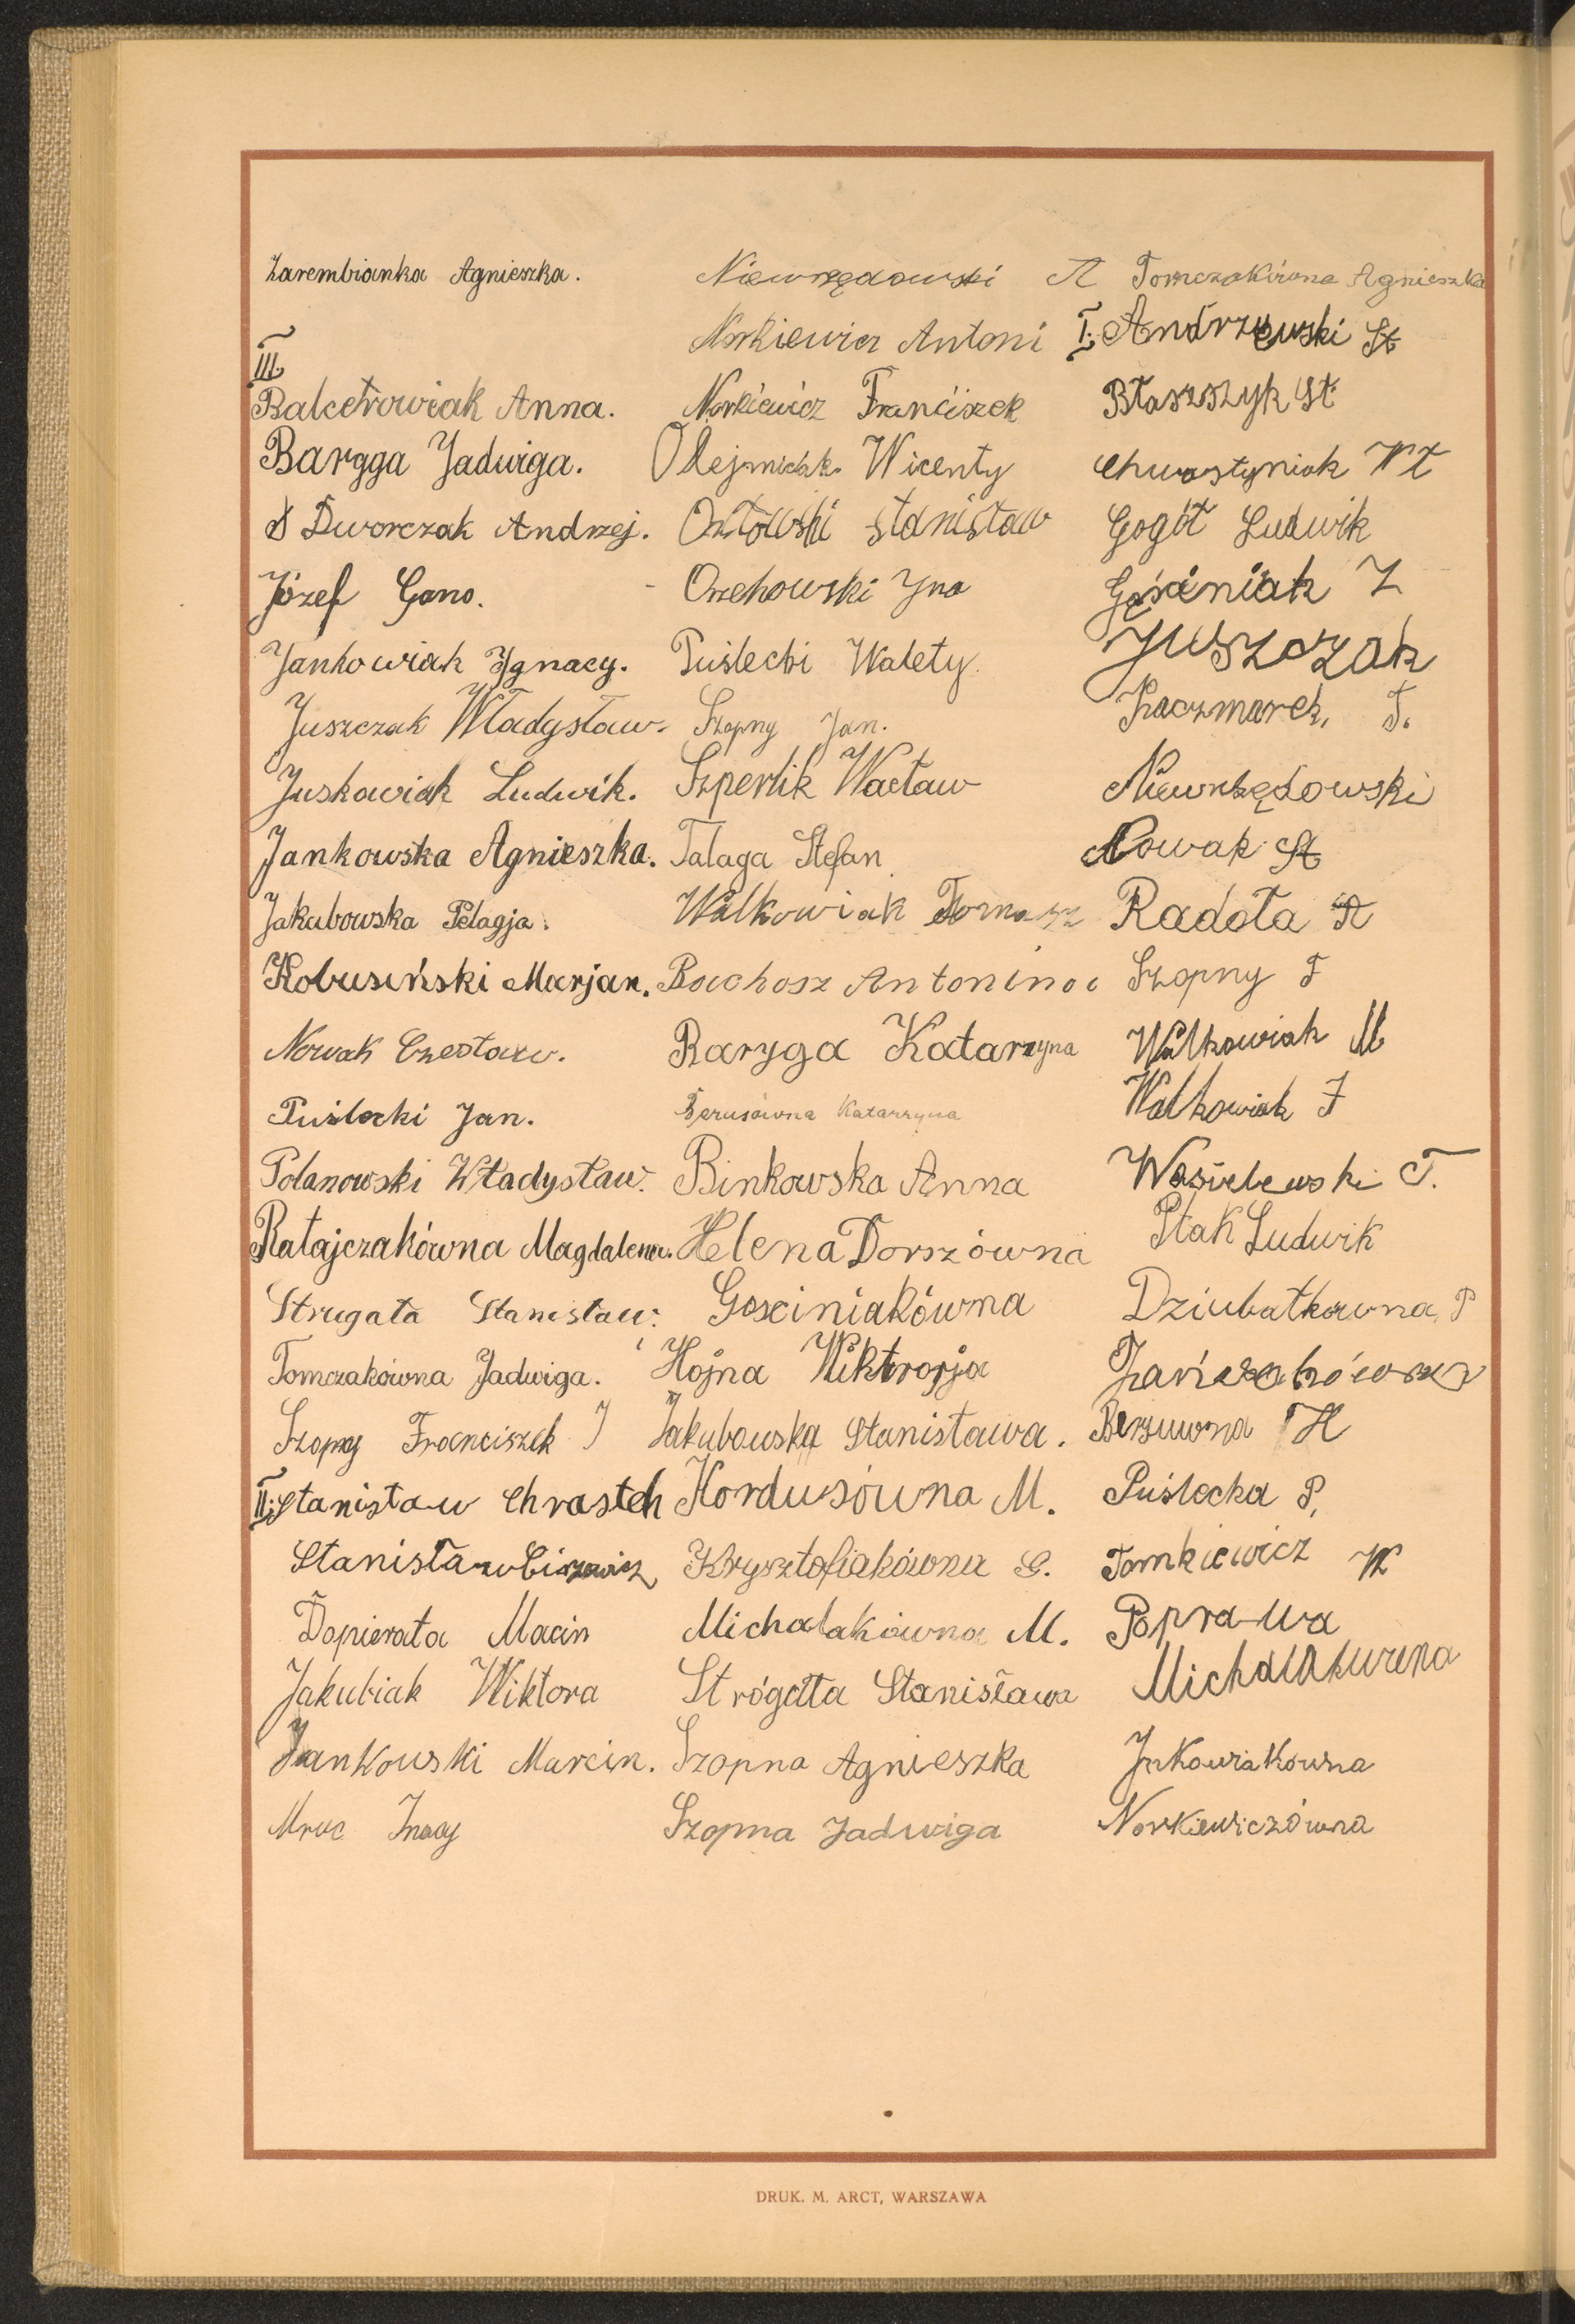 Zarembianka Agnieszka.
III.
Balcerowiak Anna.
Barygga Jadwiga.
Dworczak Andrzej.
Józef Gano.
Jankowiak Ygnacy.
Juszczak Władysław.
Juskowiak Ludwik.
Jankowska Agnieszka.
Jakubowska Pelagja.
Kobusiński Marjan.
Nowak Czesław.
Puślecki Jan.
Polanowski Władysław.
Ratajczakówna Magdalena.
Strugała Stanisław.
Tomczakówna Jadwiga.
Szopny Franciszek J
II. Stanisław Chrasteh
Stanisław
Dopierała Macin
Jakubiak Wiktora
Jankowski Marcin.
Mruc Jnacy
Niewrzędowski A
Norkiewicz Antoni
Norkiewicz Franciszek
Olejniczak Wicenty
Ozłowski Stanisław
Orzehowski Jna
Puślecki Walety.
Szopny Jan.
Szperlik Wacław
Tałaga Stefan
Walkowiak Tomasz
Bachosz Antonina
Raryga Katarzyna
Berusówna Katarzyna
Binkowska Anna
Helena Dorszówna
Gosciniakówna
Hojna Wiktrorja
Jakubowska Stanisława.
Kordusówna M.
Krysztofiakówna G.
Michalakówna M.
Strógała Stanisława
Szopna Agnieszka
Szopna Jadwiga
Tomczakówna Agnieszka
I. Andrzewski St
Błaszszyk St.
Chwastyniak Wł
Gogół Ludwik
Gościniak Z
Juszczak
Kaczmarek, T.
Niewrzędowski
Nowak St
Radoła A
Szopny F
Walkowiak M
Walkowiak J
Wasielewski T.
Ptak Ludwik
Dziubatkowna P
Berzuwna H
Puślecka P.
Tomkiewicz W
Poprawa
Michalakuwna
Jnkowiakówna
Norkiewiczówna
DRUK. M. ARCT, WARSZAWA